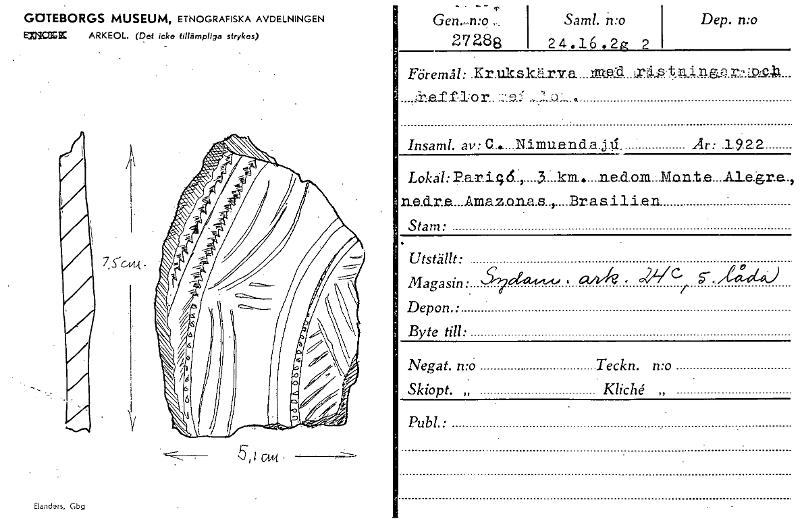 GÖTEBORGS MUSEUM, ETNOGRAFISKA AVDELNINGEN
ARKEOL. (Det icke tillämpliga strykes)
7,5 cm.
5,1 cm.
Elanders, Gbg
Gen. n:o Saml. n:o Dep. n:o
27288 24.16.2g 2
Föremål: Krukskärva med ristningar och
refflor
Insaml. av: C. Nimuendajú År: 1922
Lokal: Pariçó, 3 km. nedom Monte Alegre,
nedre Amazonas, Brasilien
Stam:
Utställt:
Magasin: Sydam. ark. 24C, 5. låda
Depon.:
Byte till:
Negat. n:o Teckn. n:o
Skiopt. „ Kliché „
Publ.: